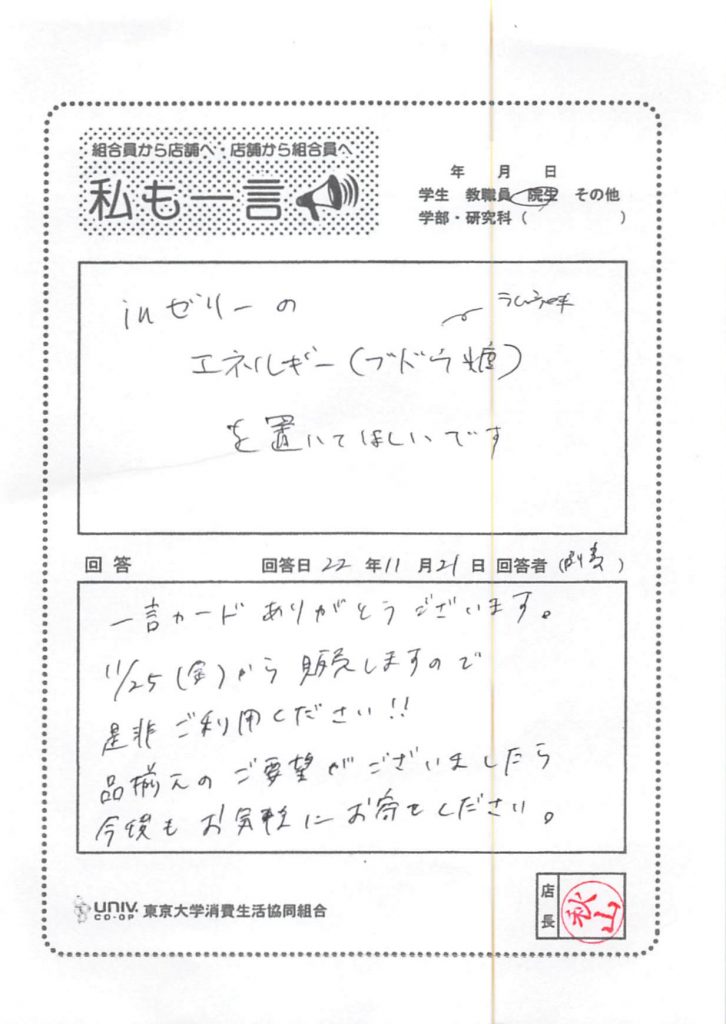 組合員から店舗へ・店舗から組合員へ
私も一言
年 月 日
学生 教職員 院生 その他
学部・研究科 ( )
inゼリーの
ラムネ味
エネルギー(ブドウ糖)
を置いてほしいです
回答 回答日 22 年 11 月 21 日 回答者 ( )
一言カードありがとうございます。
11/25(金)から販売しますので
是非ご利用ください!!
品揃えのご要望がございましたら
今後もお気軽にお寄せください。
UNIV. CO-OP 東京大学消費生活協同組合
店長 秋山